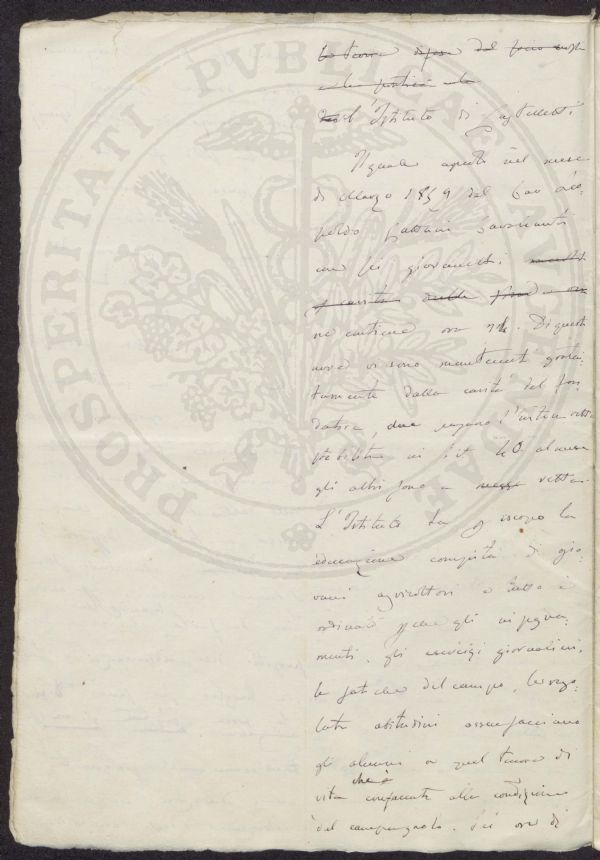 PROSPERITATI PUBLICAE AUGENDAE
l'Istituto di Castelletti
Il quale aperto nel mese
di Marzo 1859 dal Cav Leo-
poldo Cattani Cavalcanti
con sei giovanetti
ne contiene ora . Di questi
nove vi sono mantenuti gratui-
tamente dalla carità del fon-
datore, due pagano l'intera retta
stabilita in £it al mese
gli altri sono a retta.
L'Istituto ha p iscopo la
educazione compita di gio-
vani agricoltori e tutto è
ordinato p che gli insegna-
menti, gli esercizi giornalieri,
le fatiche del campo, le rego-
late abitudini assuefacciano
gli alunni a quel tenore di
vita che è confacente alla condizione
del campagnolo. Sei ore di